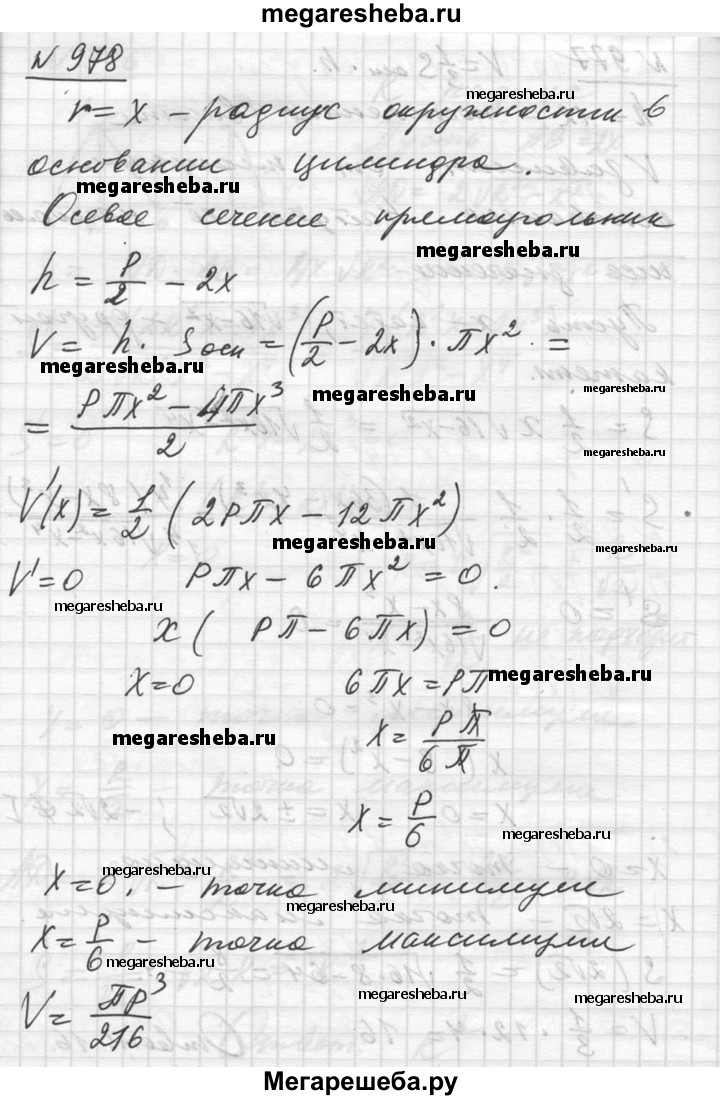 megaresheba.ru
№ 978
r = x – радиус окружности в
основании цилиндра.
megaresheba.ru
Осевое сечение прямоугольник
megaresheba.ru
h = P/2 - 2x
V = h · Sосн = (P/2 - 2x) · πx² =
megaresheba.ru
= (Pπx² - 4πx³)/2
V'(x) = 1/2 (2Pπx - 12πx²)
megaresheba.ru
V' = 0 Pπx - 6πx² = 0.
megaresheba.ru
x( Pπ - 6πx) = 0
x = 0 6πx = Pπ
megaresheba.ru
megaresheba.ru
x = Pπ/6π
x = P/6
megaresheba.ru
x = 0. – точка минимума
megaresheba.ru
x = P/6 – точка максимума
megaresheba.ru
V = πP³/216
megaresheba.ru
Мегарешеба.ру